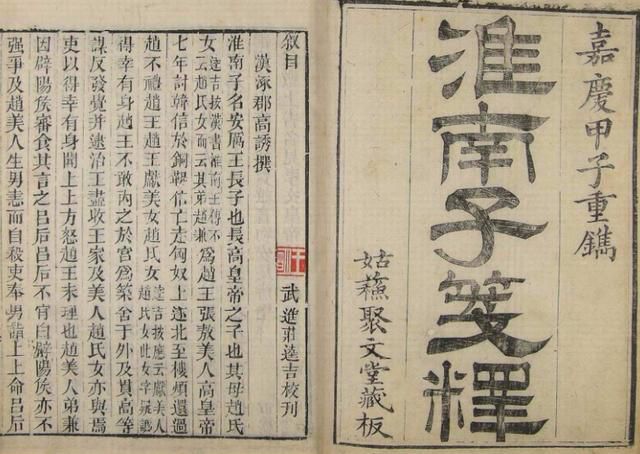 嘉慶甲子重鐫
淮南子箋釋
姑蘓聚文堂藏板
敘目 武進莊逵吉校刊
漢涿郡高誘撰
淮南子名安厲王長子也長高皇帝之子也其母趙氏
女逵吉按漢書淮南王傳不云趙氏女而云其弟趙兼爲趙王張敖美人高皇帝
七年討韓信於銅鞮信亡走匈奴上遂北至樓煩還過
趙不禮趙王趙王獻美女趙氏女逵吉按應云獻美人趙氏女此女字疑譌
得幸有身趙王不敢內之於宮爲築舍于外及貫高等
謀反發覺并逮治王盡收王家及美人趙氏女亦與焉
吏以得幸有身聞上上方怒趙王未理也趙美人弟兼
因辟陽侯審食其言之呂后呂后不肯白辟陽侯亦不
強爭及趙美人生男恚而自殺吏奉男詣上上命呂后